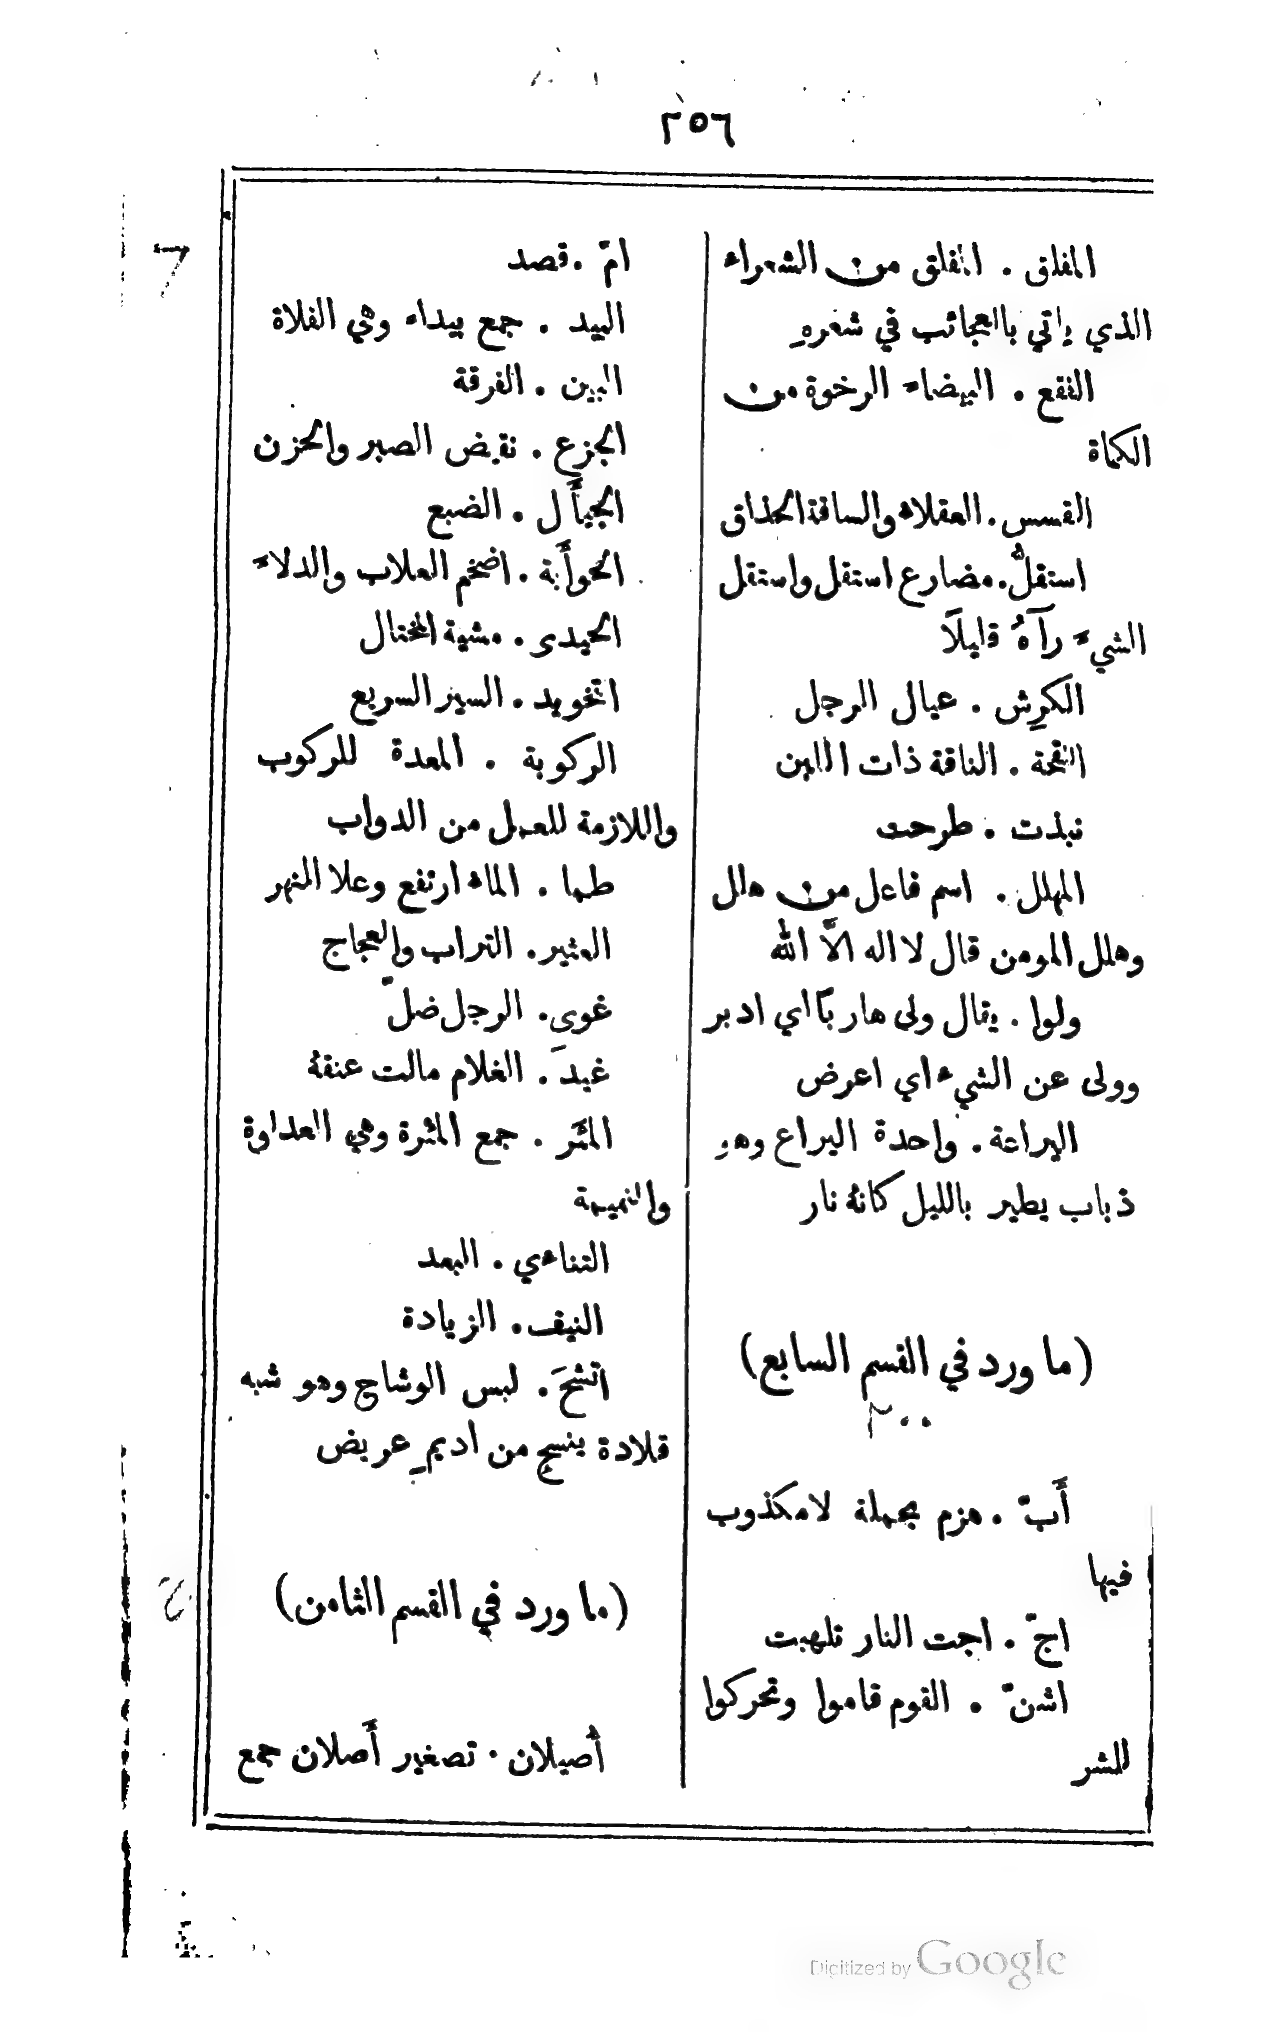 ٢٥٦
المفلق . المفلق من الشعراء
الذي ياتي بالعجائب في شعرهِ
الفقع . البيضاء الرخوة من
الكماة
القسس . العقلاء والساقة الحذاق
استقلُّ . مضارع استقل واستقل
الشيء رآهُ قليلاً
الكرِش . عيال الرجل
اللقحة . الناقة ذات اللبن
نبذت . طرحت
المهلل . اسم فاعل من هلل
وهلل المومن قال لا اله الاَّ الله
ولوا . يقال ولى هاربًا اي ادبر
وولى عن الشيء اي اعرض
اليراعة . واحدة اليراع وهو
ذباب يطير بالليل كانهُ نار
(ما ورد في القسم السابع)
٢٠٠
أَبّ . هزم بحملة لا مكذوب
فيها
اجّ . اجت النار تلهبت
اشنّ . القوم قاموا وتحركوا
للشر
امّ . قصد
البيد . جمع بيداء وهي الفلاة
البين . الفرقة
الجزع . نقيض الصبر والحزن
الجيأَل . الضبع
الحوأَبة . اضخم العلاب والدلاء
الحيدى . مشية المختال
التخويد . السير السريع
الركوبة . المعدة للركوب
واللازمة للعمل من الدواب
طما . الماء ارتفع وعلا النهر
العثير . التراب والعجاج
غوى . الرجل ضلّ
غيدَ . الغلام مالت عنقهُ
المئَر . جمع المئرة وهي العداوة
والنميمة
التناءي . البعد
النيف . الزيادة
اتشحَ . لبس الوشاح وهو شبه
قلادة ينسج من اديمٍ عريض
(ما ورد في القسم الثامن)
أُصيلان . تصغير أَصلان جمع
Digitized by Google